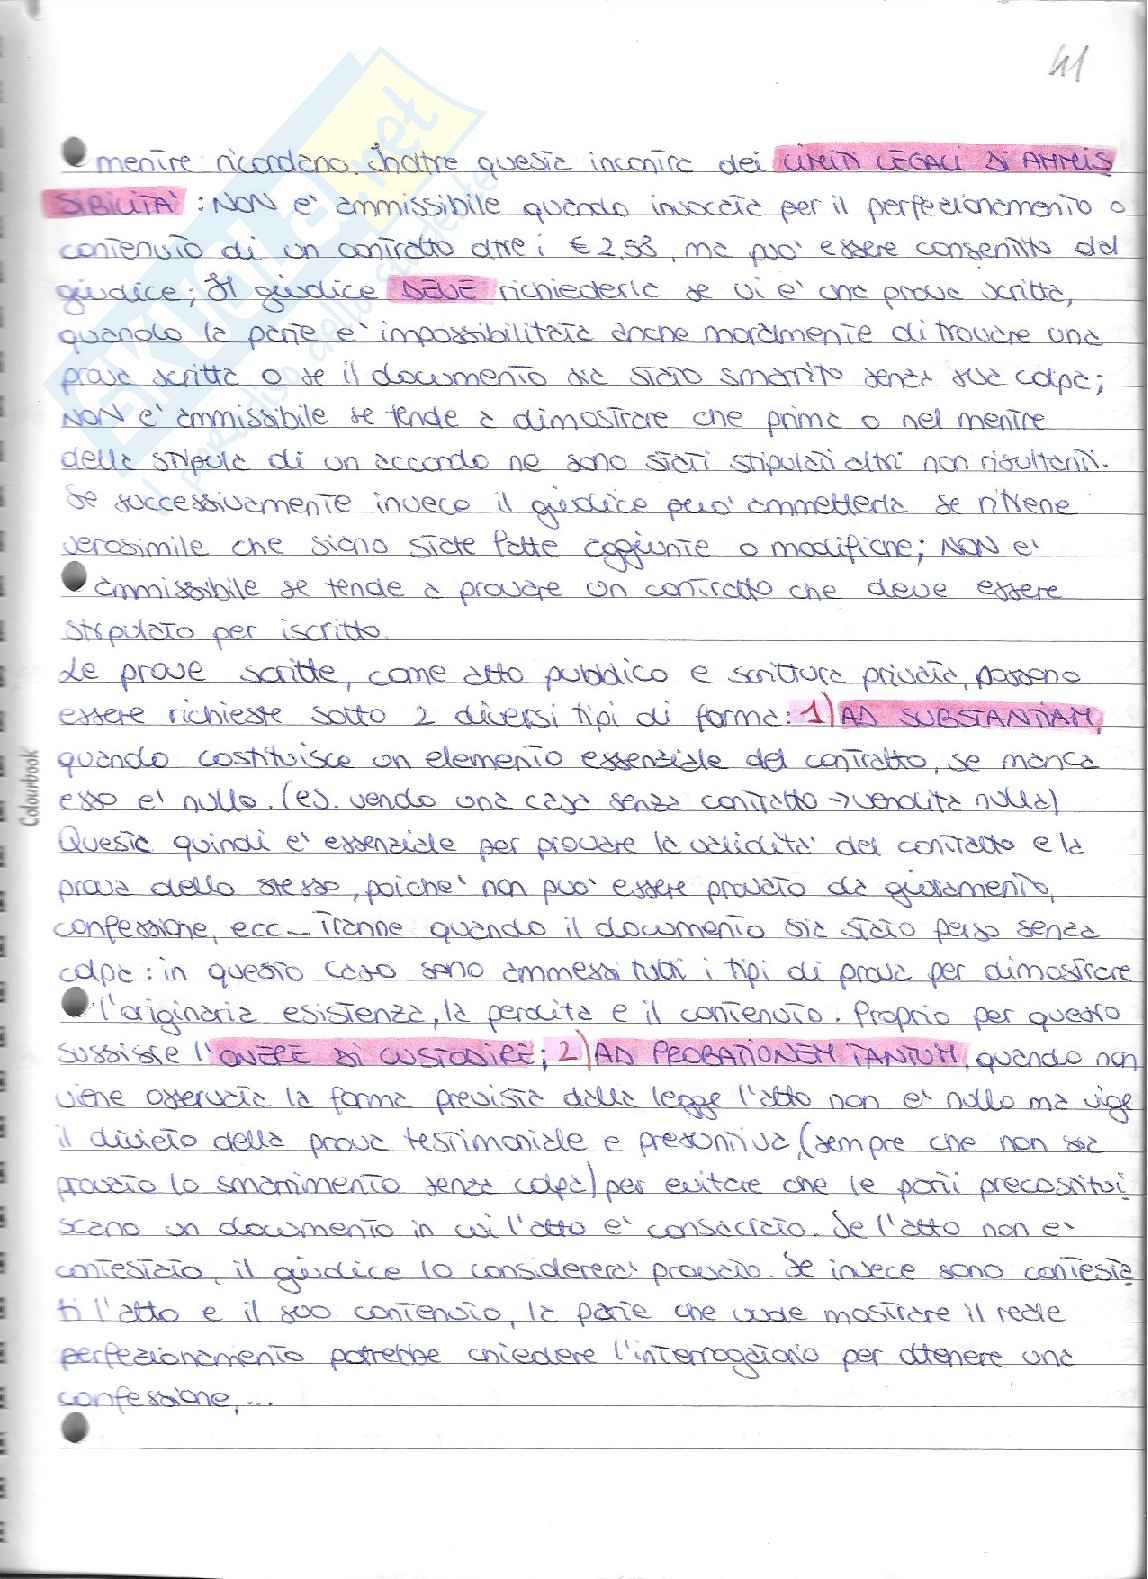 41
mentre ricordano. Inoltre questa incontra dei LIMITI LEGALI DI AMMIS
SIBILITA' : NON e' ammissibile quando invocata per il perfezionamento o
contenuto di un contratto oltre i € 2,58, ma puo' essere consentito dal
giudice; Il giudice DEVE richiederla se vi e' una prova scritta,
quando la parte e' impossibilitata anche moralmente di trovare una
prova scritta o se il documento sia stato smarrito senza sua colpa;
NON e' ammissibile se tende a dimostrare che prima o nel mentre
della stipula di un accordo ne sono stati stipulati altri non risultanti.
Se successivamente invece il giudice puo' ammetterla se ritiene
verosimile che siano state fatte aggiunte o modifiche; NON e'
ammissibile se tende a provare un contratto che deve essere
stipulato per iscritto.
Le prove scritte, come atto pubblico e scrittura privata, possono
essere richieste sotto 2 diversi tipi di forma: 1) AD SUBSTANTIAM,
quando costituisce un elemento essenziale del contratto, se manca
esso e' nullo. (es. vendo una casa senza contratto → vendita nulla)
Questa quindi e' essenziale per provare la validita' del contratto e la
prova dello stesso, poiche' non puo' essere provato da giuramento,
confessione, ecc... Tranne quando il documento sia stato perso senza
colpa: in questo caso sono ammessi tutti i tipi di prova per dimostrare
l'originaria esistenza, la perdita e il contenuto. Proprio per questo
sussiste l'ONERE DI CUSTODIRE; 2) AD PROBATIONEM TANTUM, quando non
viene osservata la forma prevista dalla legge l'atto non e' nullo ma vige
il divieto della prova testimoniale e presuntiva, (sempre che non sia
provato lo smarrimento senza colpa) per evitare che le parti precostitui
scano un documento in cui l'atto e' consacrato. Se l'atto non e'
contestato, il giudice lo considerera' provato. Se invece sono contesta
ti l'atto e il suo contenuto, la parte che vuole mostrare il reale
perfezionamento potrebbe chiedere l'interrogatorio per ottenere una
confessione,...
Colourbook
SKUOLA.net
il paradiso dello studente